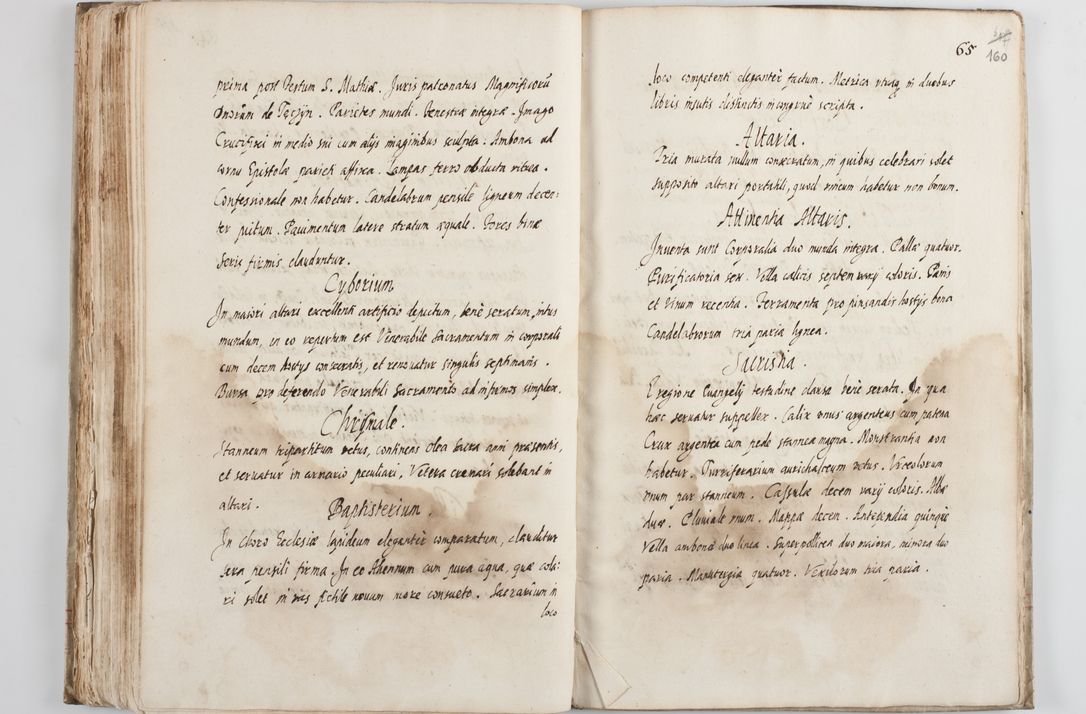 prima post Festum S. Mathiæ. Juris patronatus Magnificorũ
Dnorum de Tęczyn. Parietes mundi. Fenestræ integræ. Imago
Crucifixi in medio sui cum alijs imaginibus sculpta. Ambona ad
cornu Epistolæ parieti affixa. Lampas ferro obducta vitrea.
Confessionale non habetur. Candelabrum pensile ligneum decen:
ter pictum. Pauimentum latere stratum æquale. Fores binæ
seris firmis clauduntur.
Cyborium
In maiori altari excellenti artificio depictum, benè seratum, intus
mundum, in eo repertum est Venerabile Sacramentum in corporali
cum decem hostys consecratis, et renouatur singulis septimanis.
Bursa pro deferendo Venerabili Sacramento ad infirmos simplex.
Chrismale.
Stanneum tripartitum vetus, continens Olea sacra anni præsentis,
et seruatur in armario peculiari. Vetera cremari solebant in
altari.
Baptisterium.
In choro Ecclesiæ lapideum eleganter comparatum, clauditur
sera pensili firma. In eo Ahennum cum pura aqua, quæ cola:
ri solet in vas fictile nouum more consueto. Sacrarium in
loco
65
160
loco competenti eleganter factum. Metrica vtraq in duobus
libris insutis distinctis in congruè scripta.
Altaria.
Tria murata nullum consecratum, in quibus celebrari solet
supposito altari portatili, quod vnicum habetur non bonum.
Attinentia Altaris.
Inuenta sunt Corporalia duo munda integra. Pallæ quatuor.
Purificatoria sex. Vella calicis septem varij coloris. Panis
et Vinum recentia. Ferramenta pro pinsandis hostijs bona
Candelabrorum tria paria lignea.
Sacristia.
E regione Euangelij testudine clausa benè serata. In qua
hæc seruatur suppellex. Calix vnus argenteus cum patena
Crux argentea cum pede stannea magna. Monstrantia non
habetur. Turriferarium aurichalceum vetus. Vrceolorum
vnum par stanneum. Casulæ decem varij coloris. Albæ
duæ. Pluuiale vnum. Mappæ decem. Antependia quinque
Vella ambonæ duo linea. Superpellicea duo maiora, minora duo
paria. Manutergia quatuor. Vexilorum tria paria.